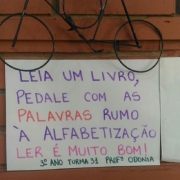 LEIA UM LIVRO,
PEDALE COM AS
PALAVRAS RUMO
À ALFABETIZAÇÃO
LER É MUITO BOM!
3º ANO TURMA 31 PROFª ODONIA